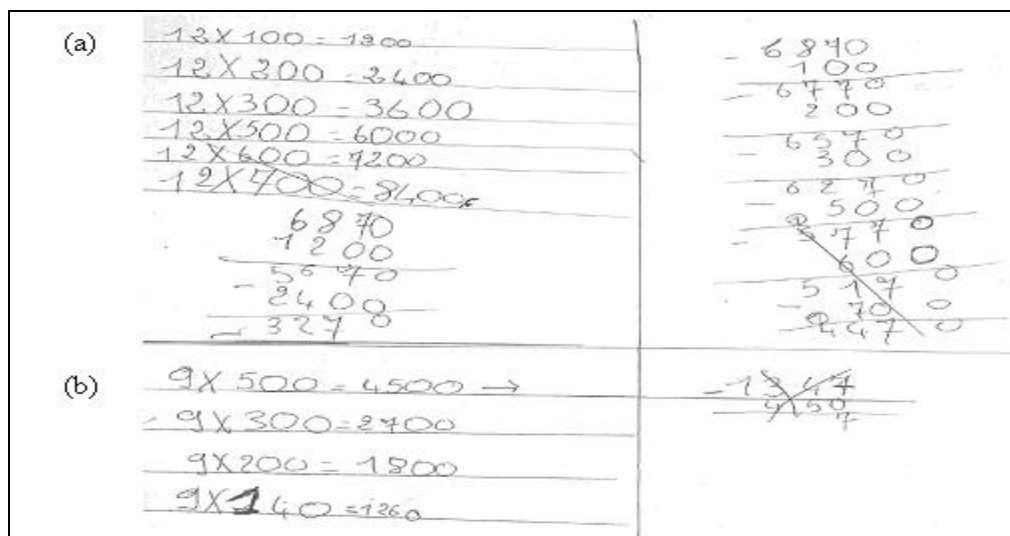 (a)
12X100=1200
12X200=2400
12X300=3600
12X500=6000
12X600=7200
12X700=8400
6870
1200
5670
- 2400
- 3270
- 6870
100
- 6770
200
6570
- 300
6270
- 500
- 5770
600
5170
- 700
4470
(b)
9X500=4500 →
- 9X300=2700
9X200=1800
9X140=1260
- 1347
450
7